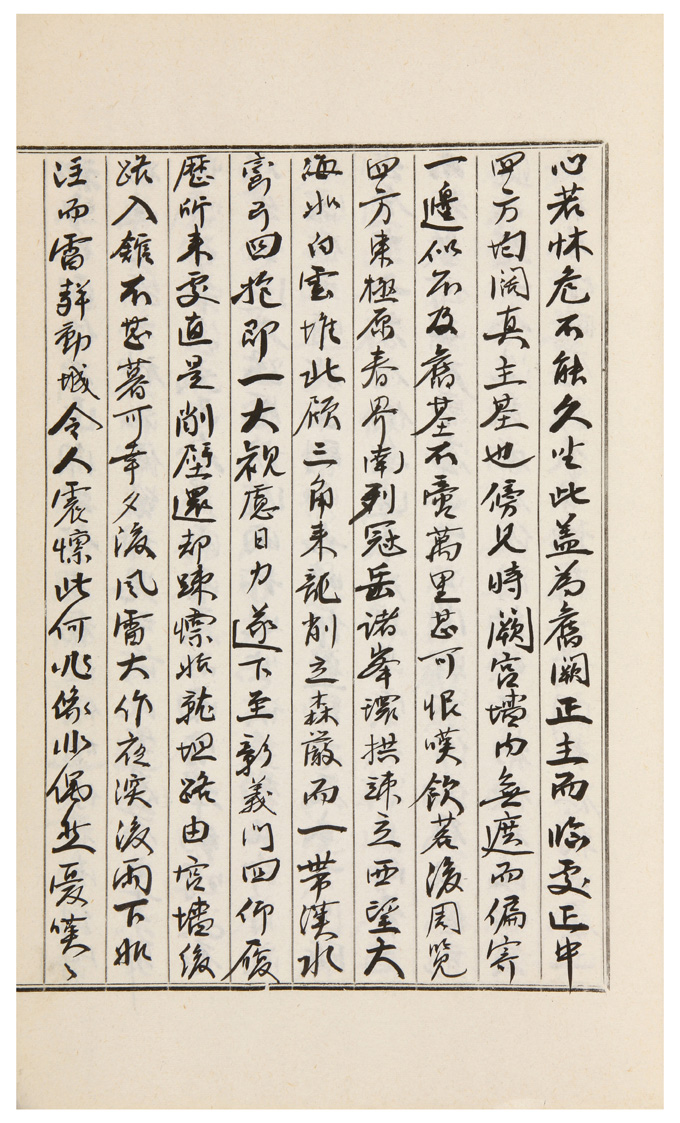 心若怵危不能久坐此盖爲舊闕正主而臨處正中
四方均闊真主基也傍見時闕宮墻內無遮而偏寄
一邊似不及舊基不啻萬里甚可恨嘆飲茗後周覽
四方東極原春界南列冠岳諸峯環拱竦立西望大
海水白雲堆北顧三角来龍削立森嚴而一帶漢水
弓四抱即一大觀處目力遂下至彰義門回仰屐
歷所来處直是削壁還却竦慄始就坦路由宮墻後
路入館不甚暮可幸夕後風雷大作夜深後雨下如
注而雷聲動城令人震慄此何兆像非偶然憂嘆〻